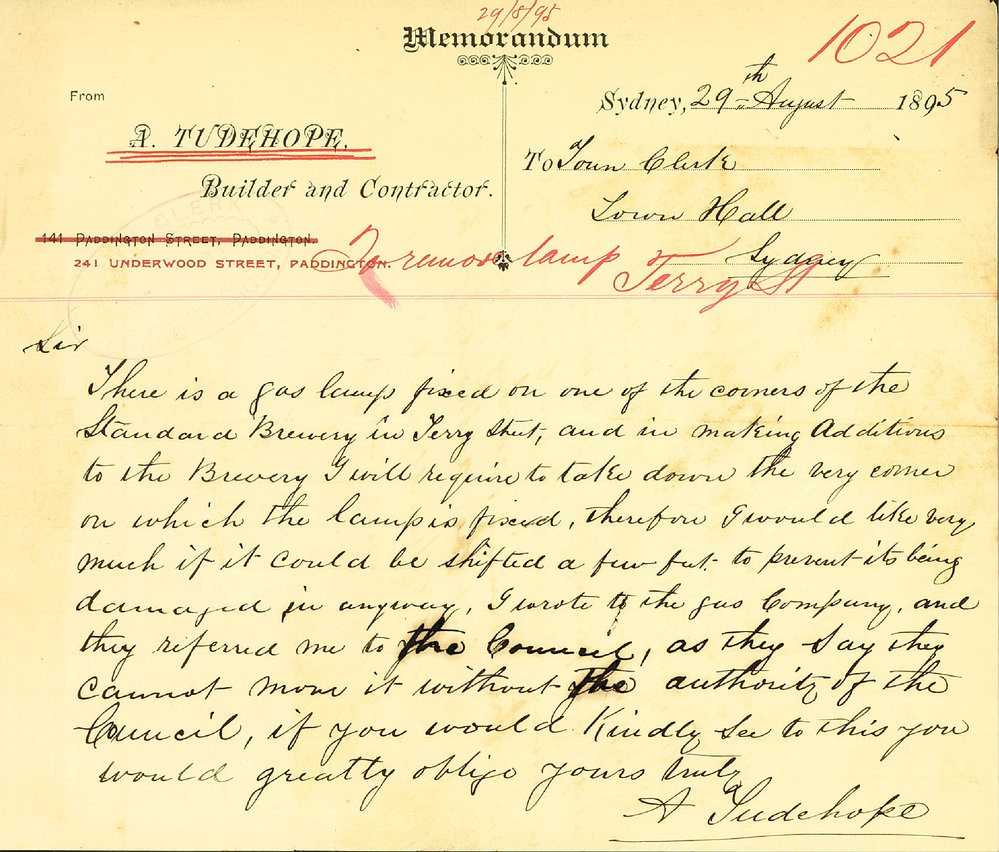 29/8/95
Memorandum
1021
From
Sydney, 29th August 1895
A. TUDEHOPE,
Builder and Contractor.
To Town Clerk
Town Hall
Sydney
141 PADDINGTON STREET, PADDINGTON.
241 UNDERWOOD STREET, PADDINGTON.
To remove lamp
Terry St
Sir
There is a gas lamp fixed on one of the corners of the
Standard Brewery in Terry Street, and in making Additions
to the Brewery I will require to take down the very corner
on which the lamp is fixed, therefore I would like very
much if it could be shifted a few feet to prevent its being
damaged in anyway, I wrote to the gas Company, and
they referred me to the Council, as they say they
cannot move it without the authority of the
Council, if you would Kindly see to this you
would greatly oblige yours truly
A Tudehope